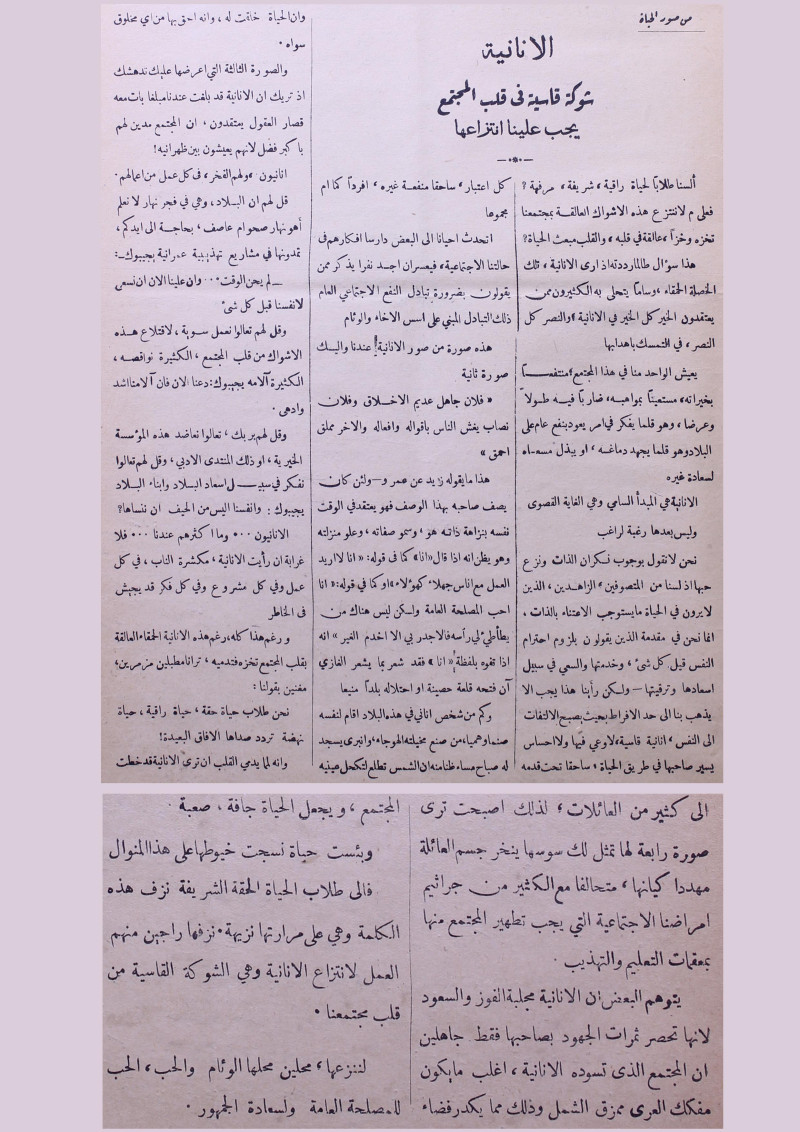 من صور الحياة
الانانية
شوكة قاسية في قلب المجتمع
يجب علينا انتزاعها
ألسنا طلاباً لحياة راقية، شريفة، مرفهة ؟
فعلى م لا ننتزع هذه الاشواك العالقة بمجتمعنا
تخزه وخزاً، عالقة في قلبه، والقلب مبعث الحياة؟
هذا سؤال طالما رددته اذ ارى الانانية، تلك
الخصلة الحمقاء، وساماً يتحلى به الكثيرون ممن
يعتقدون الخير كل الخير في الانانية، والنصر كل
النصر، في التمسك باهدابها
يعيش الواحد منا في هذا المجتمع، متنفعــاً
بخيراته، مستعيناً بمواهبه، ضارباً فيه طولاً
وعرضا، وهو قلما يفكر في امر يعود بنفع عام على
البلاد وهو قلما يجهد دماغه، او يبذل مسعاه
لسعادة غيره
الانانية هي المبدأ السامي وهي الغاية القصوى
وليس بعدها رغبة لراغب
نحن لا نقول بوجوب نكران الذات ونزع
حبها اذ لسنا من المتصوفين، الزاهدين، الذين
لا يرون في الحياة ما يستوجب الاعتناء بالذات،
انما نحن في مقدمة الذين يقولون بلزوم احترام
النفس قبل كل شئ، وخدمتها والسعي في سبيل
اسعادها وترقيتها — ولكن رأينا هذا يجب الا
يذهب بنا الى حد الافراط بحيث يصبح الالتفات
الى النفس، انانية قاسية، لا وعي فيها ولا احساس
يسير صاحبها في طريق الحياة، ساحقا تحت قدمه
كل اعتبار، ساحقا منفعة غيره، افرداً كما ام
مجموعا
اتحدث احيانا الى البعض دارسا افكارهم في
حالتنا الاجتماعية، فيعسر ان اجد نفرا يذكر ممن
يقولون بضرورة تبادل النفع الاجتماعي العام
ذلك التبادل المبني على اسس الاخاء والوئام
هذه صورة من صور الانانية! عندنا واليــك
صورة ثانية
« فلان جاهل عديم الاخلاق وفلان
نصاب يغش الناس باقواله وافعاله والاخر مملق
احمق »
هذا ما يقوله زيد عن عمرو — ولئن كان
يصف صاحبه بهذا الوصف فهو يعتقد في الوقت
نفسه بنزاهة ذاته هو، وسمو صفاته، وعلو منزلته
وهو يظن انه اذا قال «انا» كما في قوله: «انا لا اريد
العمل مع اناس جهلاء كهؤلاء» او كما في قوله: «انا
احب المصلحة العامة ولكن ليس هناك من
يطأطئ لي رأسه فالاجدر بي الا اخدم الغير» انه
اذا تفوه بلفظة «انا» فقد شعر بما يشعر الغازي
آن فتحه قلعة حصينة او احتلاله بلداً منيعا
وكم من شخص اناني في هذه البلاد اقام لنفسه
صنما وهميا، من صنع مخيلته الهوجاء، وانبرى يسجد
له صباح مساء ظنا منه ان الشمس تطلع لتكحل عينيه
وان الحياة خلقت له، وانه احق بها من اي مخلوق
سواه.
والصورة الثالثة التي اعرضها عليك تدهشك
اذ تريك ان الانانية قد بلغت عندنا مبلغا بات معه
قصار العقول يعتقدون، ان المجتمع مدين لهم
باكبر فضل لانهم يعيشون بين ظهرانيه!
انانيون.. ولهم الفخر، في كل عمل من اعمالهم.
قل لهم ان البلاد، وهي في فجر نهار لا نعلم
أهو نهار صحو ام عاصف، بحاجة الى ايدكم،
تمدونها في مشاريع تهذيبية عمرانية يجيبوك:ـ
ـ لم يحن الوقت... وان علينا الان ان نسعى
لانفسنا قبل كل شئ
وقل لهم تعالوا نعمل سوية، لاقتلاع هذه
الاشواك من قلب المجتمع، الكثيرة نواقصه،
الكثيرة آلامه يجيبوك: دعنا الان فان آلامنا اشد
وادهى.
وقل لهم بربك، تعالوا نعاضد هذه المؤسسة
الخيرية، او ذلك المنتدى الادبي، وقل لهم تعالوا
نفكر في سبيــل اسعاد البلاد وابناء البلاد
يجيبوك: وانفسنا اليس من الحيف ان ننساها؟
الانانيون ... وما اكثرهم عندنا ... فلا
غرابة ان رأيت الانانية، مكشرة الناب، في كل
عمل وفي كل مشروع وفي كل فكر قد يجيش
في الخاطر
ورغم هذا كله، رغم هذه الانانية الحمقاء العالقة
بقلب المجتمع تخزه فتدميه، ترانا مطبلين مزمرين،
مغنين بقولنا:
نحن طلاب حياة حقة، حياة راقية، حياة
نهضة تردد صداها الافاق البعيدة!
وانه لما يدمي القلب ان ترى الانانية قد خطت
الى كثير من العائلات، لذلك اصبحت ترى
صورة رابعة لها تمثل لك سوسها ينخر جسم العائلة
مهددا كيانها، متحالفا مع الكثير من جراثيم
امراضنا الاجتماعية التي يجب تطهير المجتمع منها
بمعقمات التعليم والتهذيب.
يتوهم البعض ان الانانية مجلبة الفوز والسعود
لانها تحصر ثمرات الجهود بصاحبها فقط جاهلين
ان المجتمع الذي تسوده الانانية، اغلب ما يكون
مفكك العرى ممزق الشمل وذلك مما يكدر فضاء
المجتمع، ويجعل الحياة جافة، صعبة.
وبئست حياة نسجت خيوطها على هذا المنوال
فالى طلاب الحياة الحقة الشريفة نزف هذه
الكلمة وهي على مرارتها نزيهة. نزفها راجين منهم
العمل لانتزاع الانانية وهي الشوكة القاسية من
قلب مجتمعنا.
لننزعها، محلين محلها الوئام والحب، الحب
للمصلحة العامة ولسعادة الجمهور.